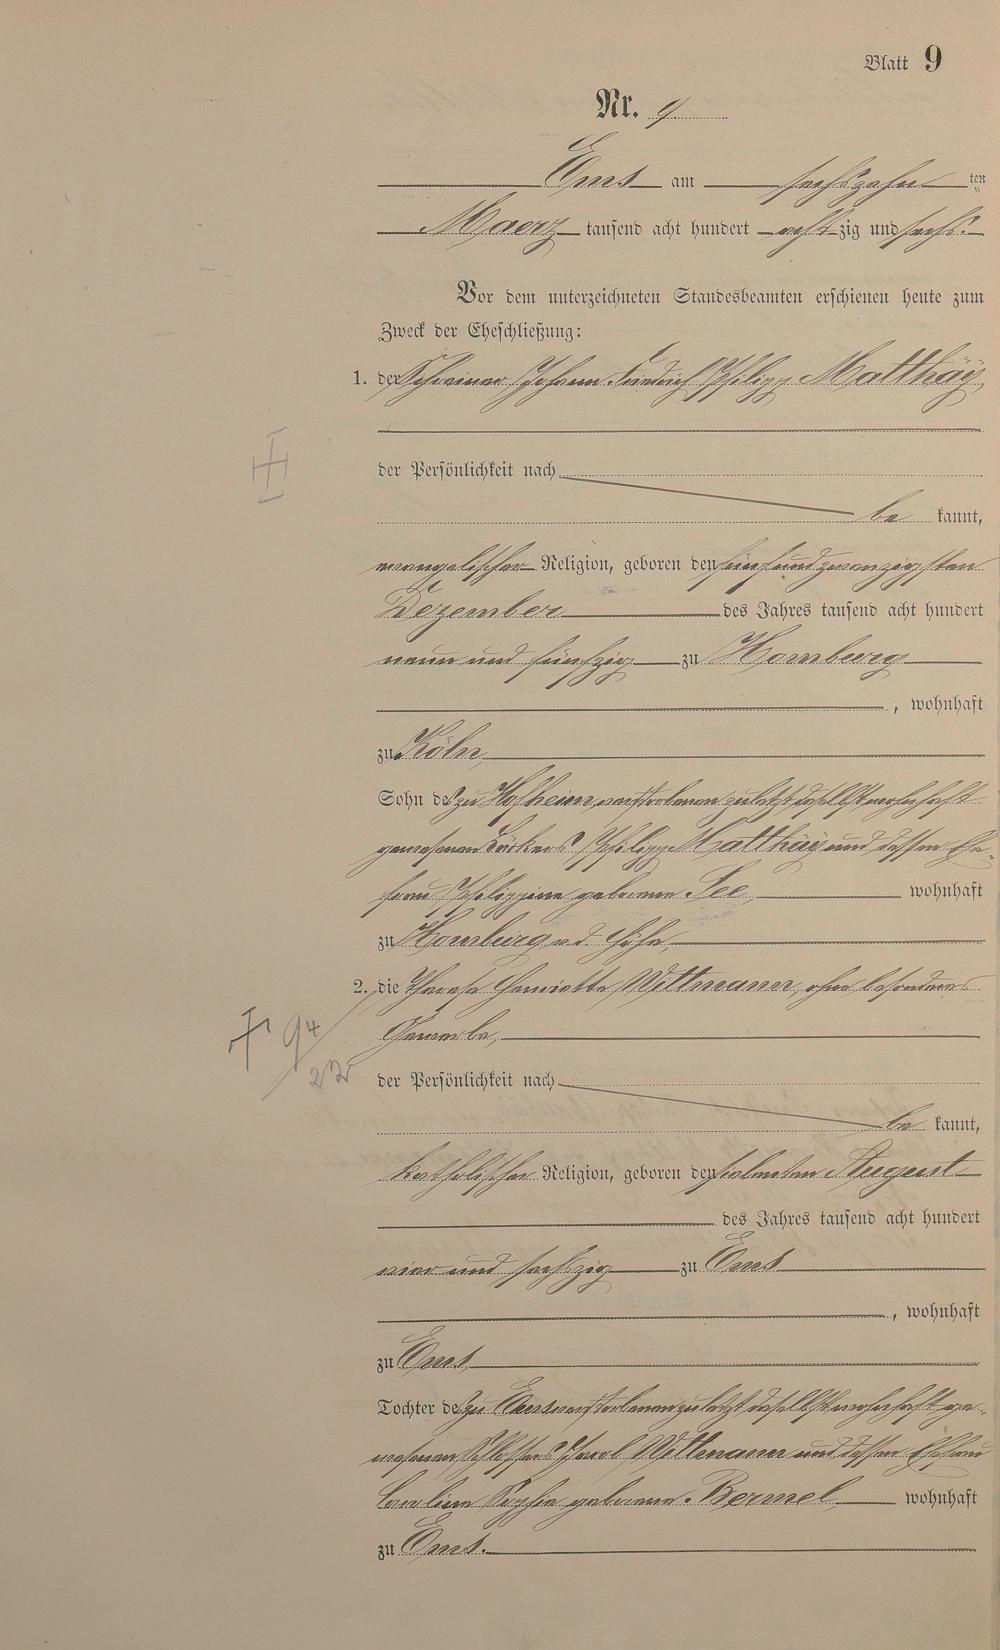 Blatt 9
Nr. 9.
Ems am sechszehn ten
Maerz tausend acht hundert acht zig und sechs.
Vor dem unterzeichneten Standesbeamten erschienen heute zum
Zweck der Eheschließung:
1. der Schreiner Johann Friedrich Philipp Matthäy,
der Persönlichkeit nach
be kannt,
evangelischer Religion, geboren den fünfundzwanzigsten
Dezember des Jahres tausend acht hundert
neun und fünfzig zu Homburg
, wohnhaft
zu Köln,
Sohn des zu Hofheim verstorbenen zuletzt daselbst wohnhaft
gewesenen Bäckers Philipp Matthäy und dessen Ehe-
frau Philippine geborene See, wohnhaft
zu Homburg v. d. Höhe,
2. die Therese Henriette Wittmann, ohne besonderes
Gewerbe,
94
der Persönlichkeit nach
be kannt,
katholischer Religion, geboren den siebenten August
des Jahres tausend acht hundert
vier und sechszig zu Ems
, wohnhaft
zu Ems
Tochter des zu Ems verstorbenen zuletzt daselbst wohnhaft ge-
wesenen Schlossers Jacob Wittmann und dessen Ehefrau
Caroline Sophie geborene Bermel wohnhaft
zu Ems.